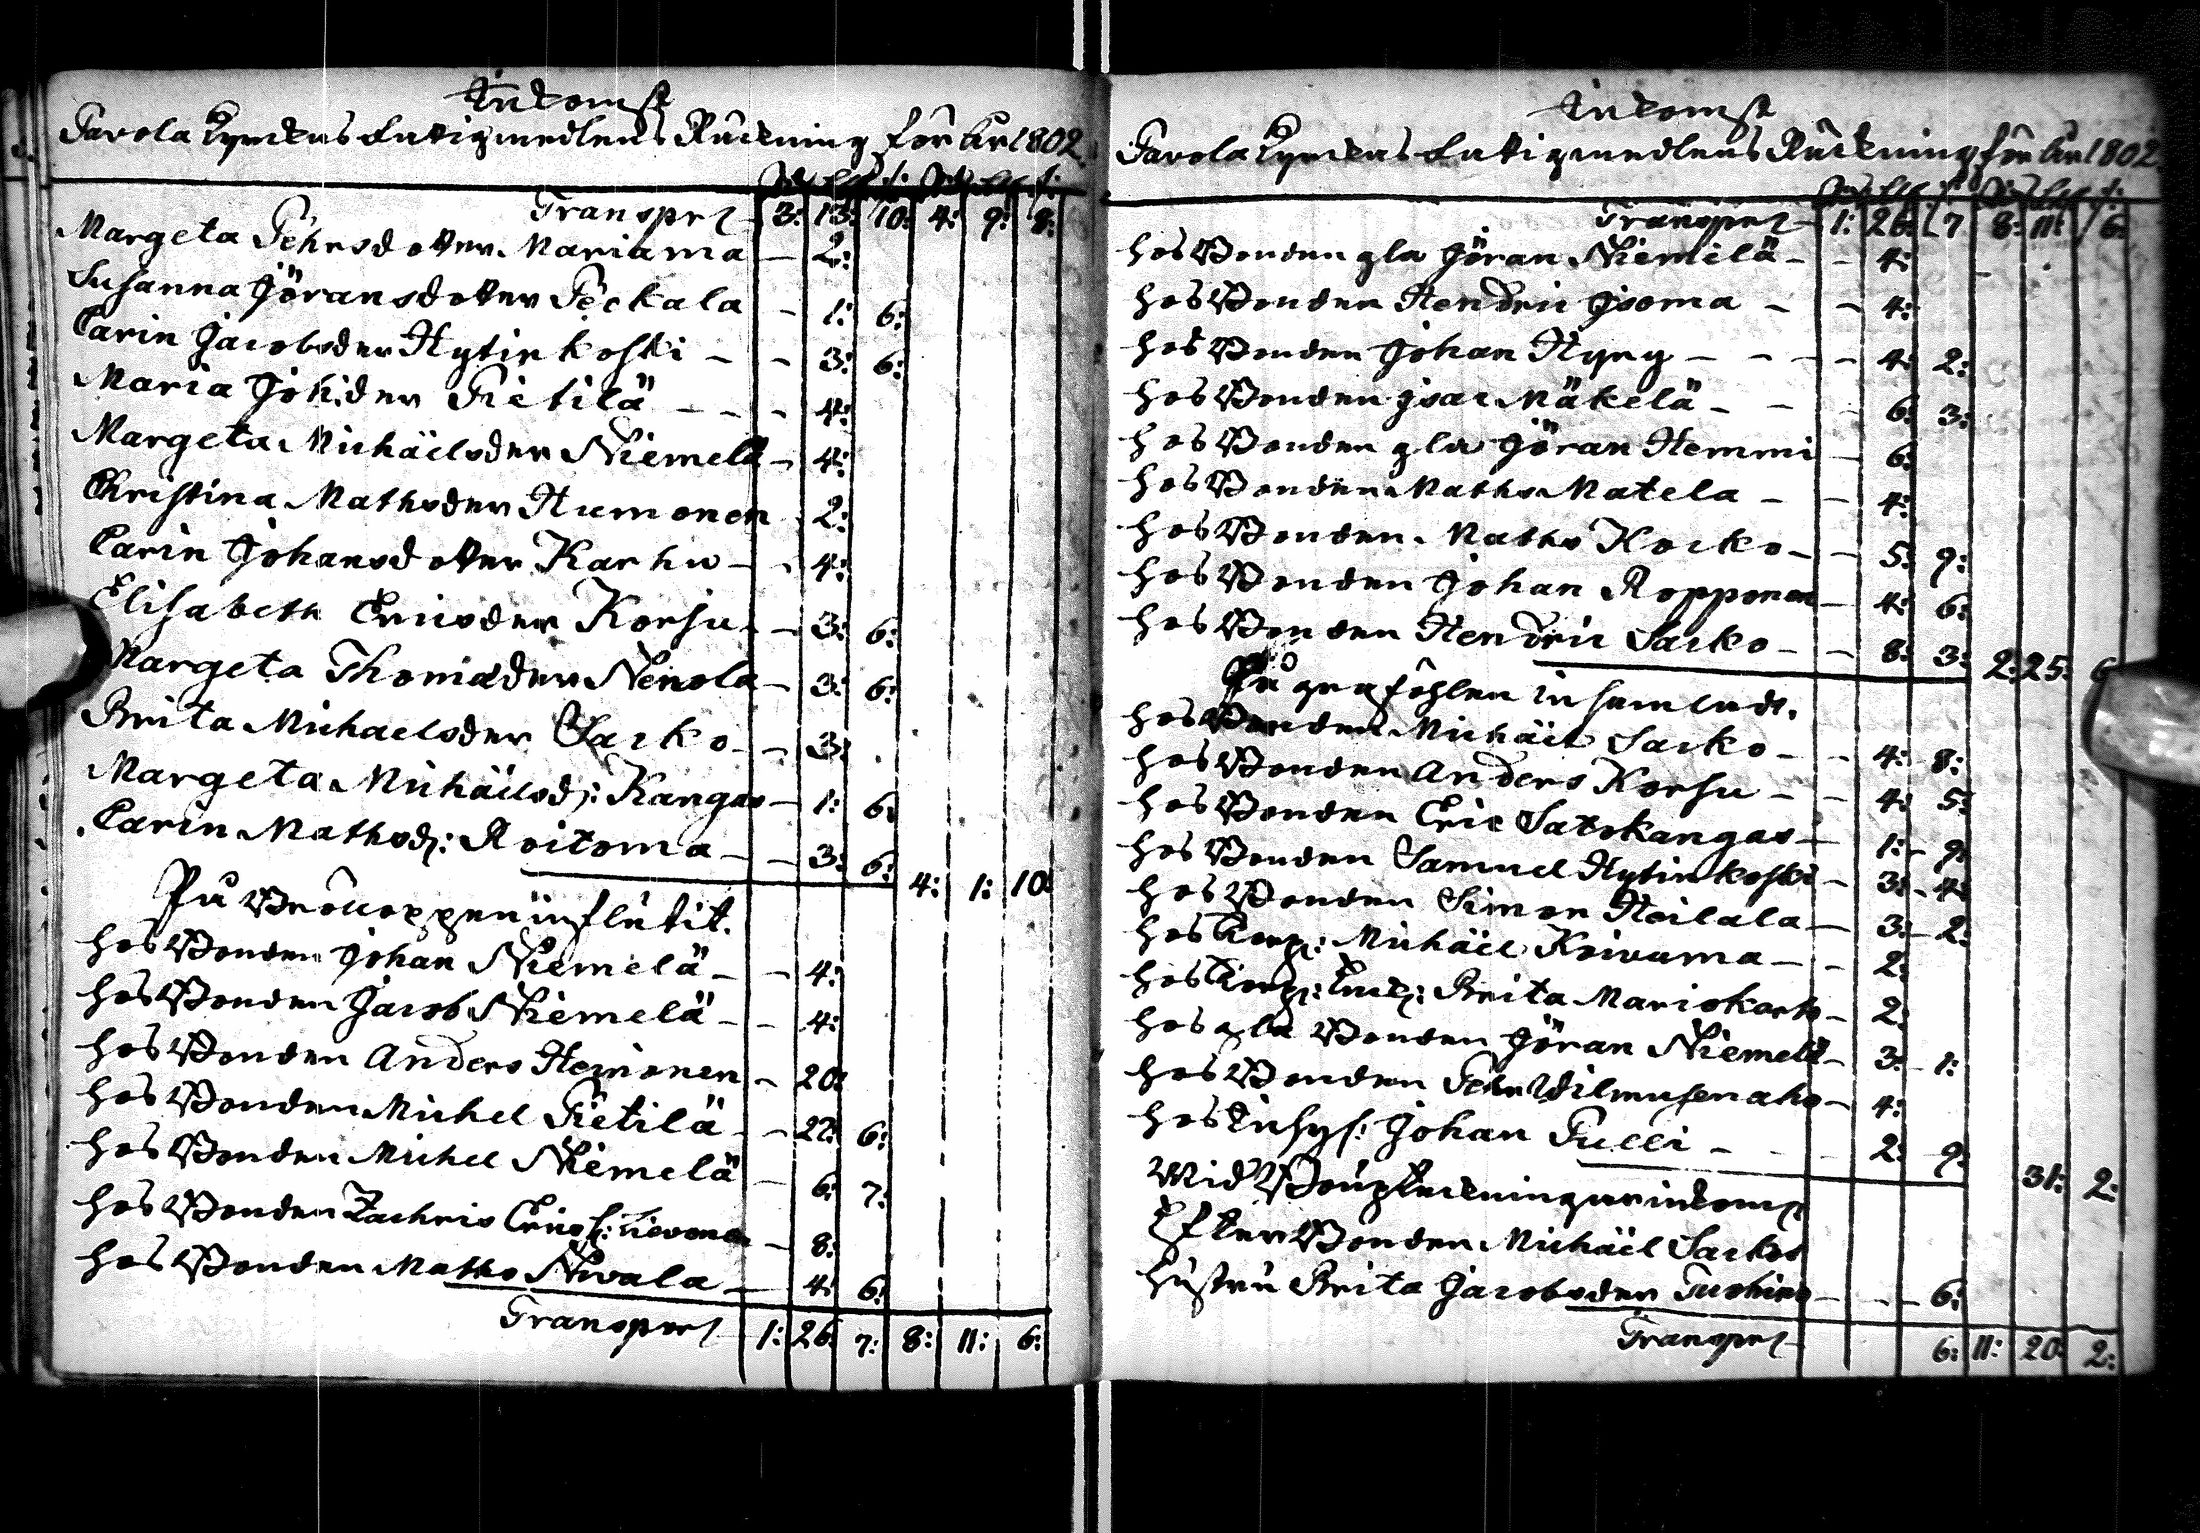 Inkomst
Pavola Kyrckas Fattigmedlens Räckning för År 1802.
Rd ß f: Rd ß f:
Transport 3: 13: 10: 4: 9: 8:
Margeta Pehrsdotter Mariama — 2:
Susanna Göransdotter Peckala — 1: 6:
Carin Jacobsder Hytinkoski — — 3: 6:
Maria Joh:der Pietilä — — — 4:
Margeta Michäelsder Niemelä — 4:
Christina Mathsder Humonen 2:
Carin Johansdotter Karhu — — 4:
Elisabeth Ericsder Korsu — — 3: 6:
Margeta Thomædder Nenola — 3: 6:
Brita Michaelsder Sarko — — 3:
Margeta Michäelsd: Kangas — 1: 6:
Carin Mathsd: Roitoma — — 3: 6: 4: 1: 10:
På Bröllopper influtit.
hos Bonden Johan Niemelä — — 4:
hos Bonden Jacob Niemelä — — 4:
hos Bonden Anders Heinonen — 20:
hos Bonden Michel Pietilä — — 22: 6:
hos Bonden Michel Niemelä — 6: 7:
hos Bonden Zachris Ericss: — 8:
hos Bonden Maths Nivala — — 4: 6:
Transport 1: 26: 7: 8: 11: 6:
Inkomst
Pavola Kyrckas Fattigmedlens Räckning för År 1802.
Rd ß f: Rd ß f:
Transport 1: 26: 7 8: 11: 6:
hos Bonden gla Göran Niemelä — — 4:
hos Bonden Hendric Jsoma — — 4:
hos Bonden Johan Hyry — — — — 4: 2:
hos Bonden Jsac Mäkelä — — — 6: 3:
hos Bonden gla Göran Hemmi — 6:
hos Bonden Maths Matela — — 4:
hos Bonden Maths Kocko — — 5: 9:
hos Bonden Johan Ropponen — 4: 6:
hos Bonden Hendric Sarko — — 8: 3: 2: 25: 6
På grafölen insamladt.
hos Bonden Michäel Sarko — — 4: 8:
hos Bonden Anders Korsu — — 4: 5:
hos Bonden Eric Satokangas — 1: 9:
hos Bonden Samuel Hytinkoski — 3: 4:
hos Bonden Simon Heilala — 3: 2:
hos Torp: Michäel Koivuma — — 2:
hos Torp: Enck: Brita Mariskorb — 2:
hos gla Bonden Göran Niemelä — 3: 1:
hos Bonden Pehr Wilmusenaho — 4:
hos Inhys: Johan Pulli — — — 2: 9: 31: 2:
Wid Barnkyrckningar inkom
Efter Bonden Michäel Sarkos
hustru Brita Jacobsder — — — 6:
Transport 6: 11: 20: 2: